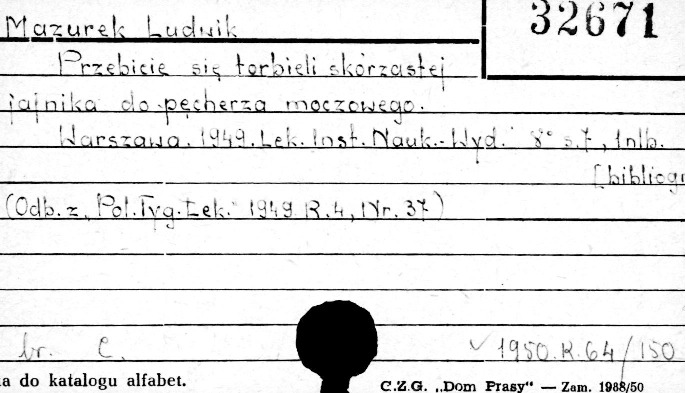 32671
Mazurek Ludwik
Przebicie się torbieli skórzastej
jajnika do pęcherza moczowego.
Warszawa. 1949. Lek. Inst. Nauk.-Wyd. 8° s. 7, 1 nlb.
[bibliogr
(Odb. z „Pol. Tyg. Lek." 1949 R. 4, Nr. 37)
br. C. 1950. K. 64/150
a do katalogu alfabet. C.Z.G. „Dom Prasy" — Zam. 1988/50